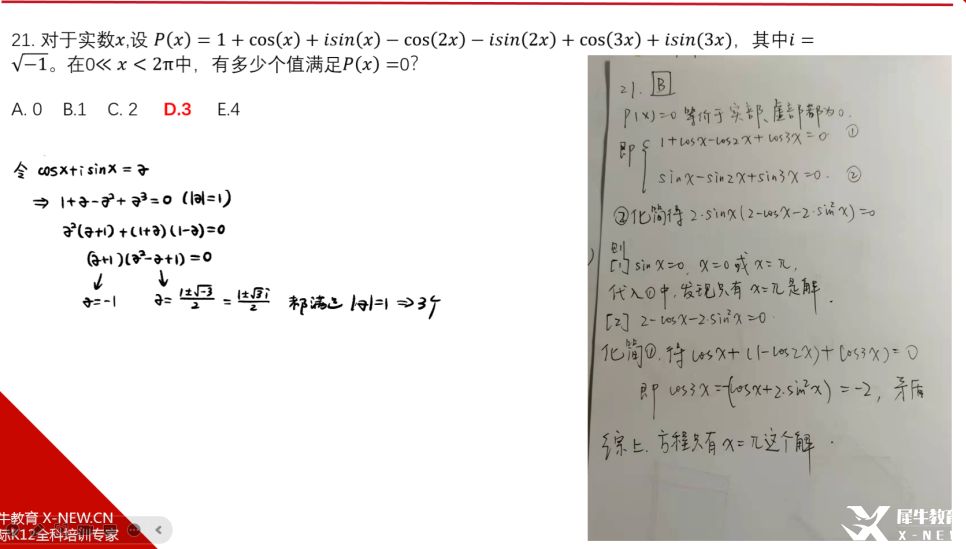 21. 对于实数x,设 P(x) = 1 + cos(x) + isin(x) − cos(2x) − isin(2x) + cos(3x) + isin(3x)，其中i =
√−1。在0≪ x < 2π中，有多少个值满足P(x) =0?
A. 0 B.1 C. 2 D.3 E.4
令 cosx+i sinx = z
⇒ 1+z-z²+z³=0 (|z|=1)
z²(z+1)+(1+z)(1-z)=0
(z+1)(z²-z+1)=0
↓ ↓
z=-1 z= 1±√-3/2 = 1±√3i/2 都满足 |z|=1 ⇒3个
21. B
P(x)=0 等价于实部、虚部都为0.
即{ 1+cosx-cos2x+cos3x=0 ①
sinx-sin2x+sin3x=0. ②
②化简得 2·sinx(2-cosx-2·sin²x)=0
则
[1] sinx=0, x=0或x=π,
代入①中,发现只有x=π是解.
[2] 2-cosx-2·sin²x=0
化简①,得 cosx+(1-cos2x)+cos3x)=0
即 cos3x=-(cosx+2·sin²x)=-2, 矛盾
综上.方程只有x=π这个解.
牛教育 X-NEW.CN
际K12全科培训专家
犀牛教育
X-NE